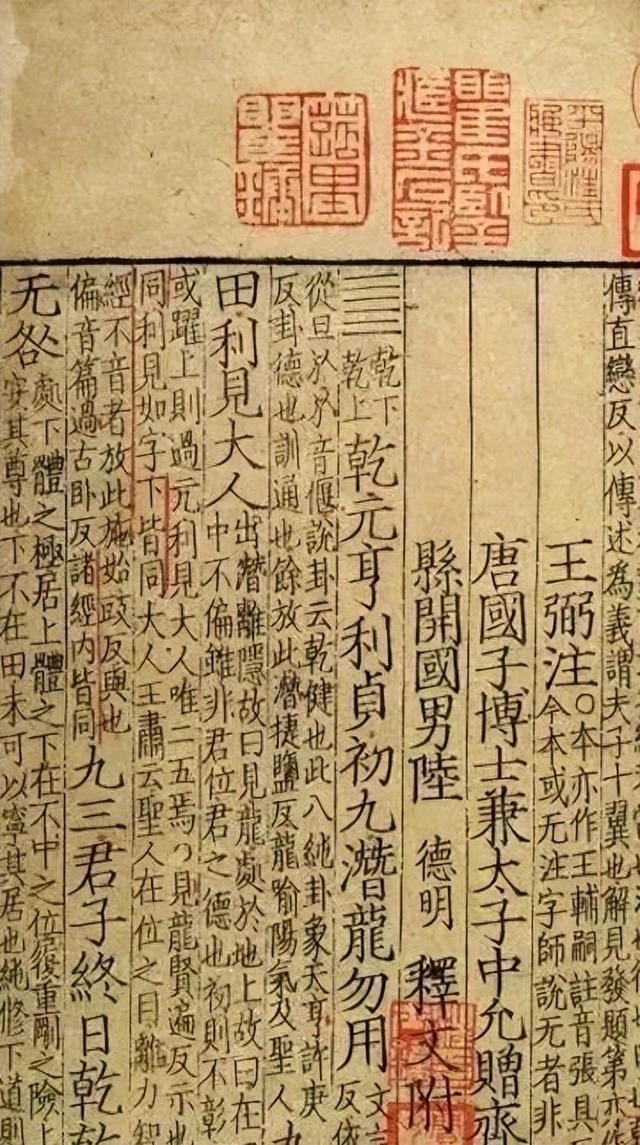 傳直戀反以傳述為義謂夫子十翼也解見發題第亦作
王弼注
○本亦作王輔嗣註音張具
今本或无注字師說无者非
唐國子博士兼太子中允贈齊
縣開國男陸 德明 釋文附
䷀
乾下
乾上
乾元亨利貞初九潛龍勿用
文言
反依
從旦於㫃音偃說卦云乾健也此八純卦象天亨許庚
反卦德也訓通也餘放此潛捷鹽反龍喻陽氣及聖人
九
田利見大人
出潛離隱故曰見龍處於地上故曰在
中不偏雖非君位君之德也初則不彰
或躍上則過亢利見大人唯二五焉○見龍賢遍反示也
同利見如字下皆同大人王肅云聖人在位之目離力智
經不音者放此施始豉反與也
偏音篇過古卧反諸經內皆同
九三君子終日乾乾
无咎
處下體之極居上體之下在不中之位履重剛之險上
安其尊也下不在田未可以寧其居也純修下道則